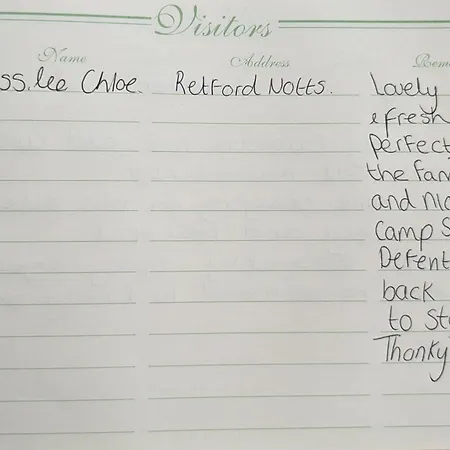 Visitors
Name Address Rem
ss. lee Chloe Retford Notts. Lovely
& fresh
perfect
the fam
and nic
camp s
Defent
back
to sta
Thanky